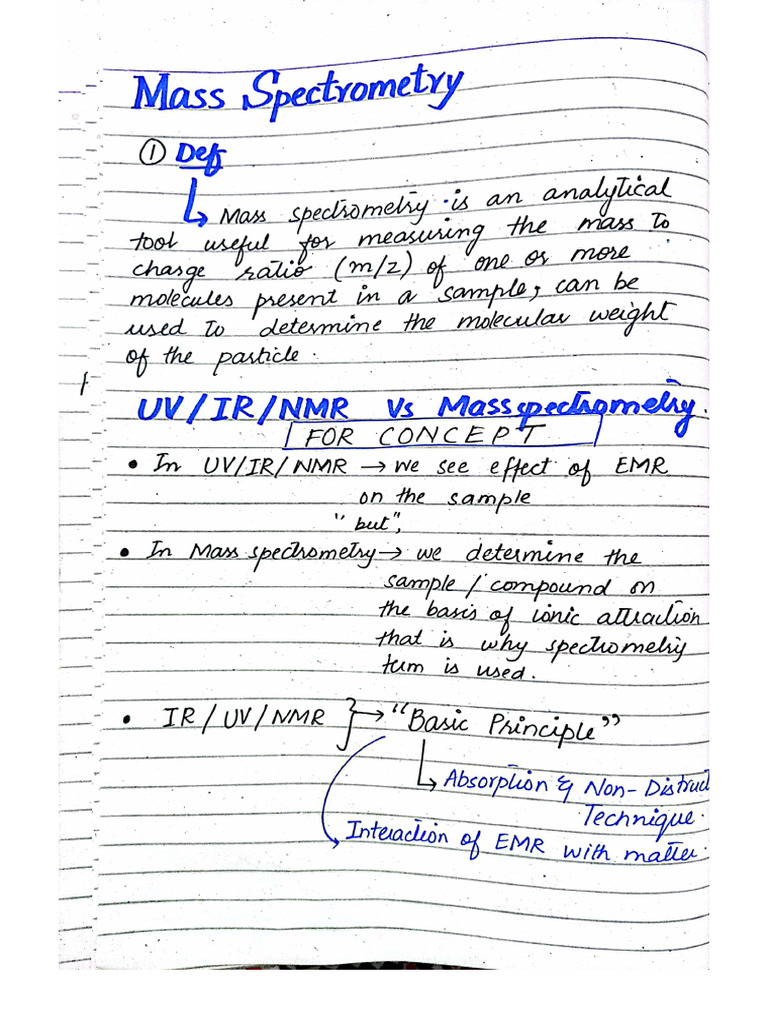 Mass Spectrometry
① Def
↳ Mass spectrometry is an analytical
tool useful for measuring the mass to
charge ratio (m/z) of one or more
molecules present in a sample, can be
used to determine the molecular weight
of the particle.
UV/IR/NMR Vs Mass spectrometry.
FOR CONCEPT
• In UV/IR/NMR → we see effect of EMR
on the sample
"but",
• In Mass spectrometry → we determine the
sample / compound on
the basis of ionic attraction
that is why spectrometry
term is used.
• IR/UV/NMR } → "Basic Principle"
↳ Absorption & Non-Distruct
Technique.
Interaction of EMR with matter.